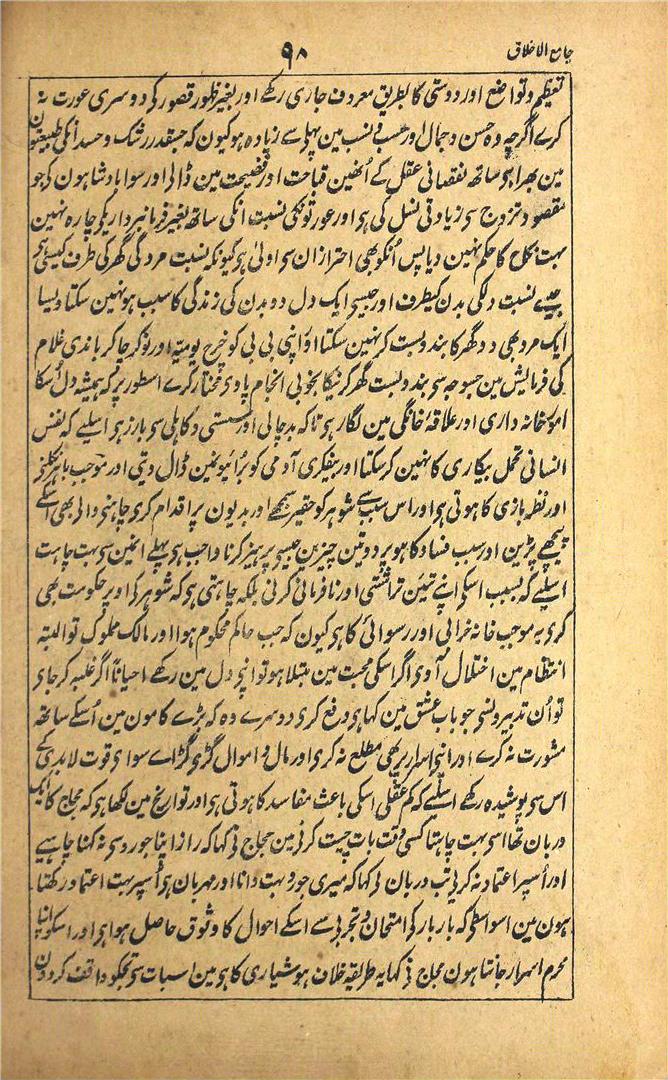 جامع الاخلاق
٩٨
تعظیم و تواضع اور دوستی کا بطریق معروف جاری رکھے اور بغیر ظہور قصور کی دوسری عورت نہ
کرے اگرچہ وہ حسن و جمال اور حسب و نسب مین پہلی سے زیادہ ہو کیون کہ جسقدر رشک و حسد انکی طبیعتون
مین بھرا ہی ساتھ نقصانی عقل کے اُنھین قباحت اور فضیحت مین ڈالی اور سوا بادشاہون کی جو
مقصود تزوج سی زیادتی نسل کی ہی اور عورتونکی نسبت انکی ساتھ بغیر فرمانبرداریکی چارہ نہین
بہت نکاح کا حکم نہین دیا پس اُنکو بھی احتراز ان سی اولیٰ ہی کیونکہ نسبت مرد کی گھر کی طرف کیسی ہی
جیسے نسبت دلکی بدن کیطرف اور جیسی ایک دل دو بدن کی زندگی کا سبب ہو نہین سکتا ویسا
ایک مرد بھی دو گھر کا بندوبست کر نہین سکتا اؤ اپنی بی بی کو خرچ یومیہ اور نوکر چاکر باندی غلام
کی فرمایش مین جسوجہ سی بندوبست گھر کرنیکا بخوبی انجام پاوی مختار کرے اسطور پر کہ ہمیشہ دل اُسکا
امور خانہ داری اور علاقۂ خانگی مین لگا رہی تاکہ بدچالی اور سستی و کاہلی سی باز رہی اسلیے کہ نفس
انسانی تحمل بیکاری کا نہین کر سکتا اور بیفکری آدمی کو برائیونمین ڈال دیتی اور موجب باہر نکلنی
اور نظر بازی کا ہوتی ہی اور اس سبب سے شوہر کو حقیر سمجھے اور بدیون پر اقدام کری چاہنی والی بھی اُسکے
پیچھے پڑین اور سبب فساد کا ہو پر دو تین چیزین جیسی پرہیز کرنا واجب ہی پہلے انہین سی بہت چاہت
اسلیے کہ بسبب اسکی اپنے تئین تراشتی اور نافرمانی کرنی بلکہ چاہتی ہی کہ شوہر کی اوپر حکومت بھی
کری یہ موجب خانہ خرابی اور رسوائی کا ہی کیون کہ جب حاکم محکوم ہوا اور مالک مملوک تو البتہ
انتظام مین اختلال آوی اگر اسکی محبت مین مبتلا ہو تو اپنی دل مین رکھے احیاناً اگر غلبہ کر جای
تو اُن تدبیرونسی جو باب عشق مین کہا ہی دفع کری دوسرے وہ کہ بڑے کامون مین اُسکے ساتھ
مشورت نہ کرے اور اپنی اسرار پر بھی مطلع نہ کری اور مال و اموال گڑی گڑاے سوای قوت لابدی کے
اس سی پوشیدہ رکھے اسلیے کہ کم عقلی اسکی باعث مفاسد کا ہوتی ہی اور تواریخ مین لکھا ہی کہ حجاج کا ایک
دربان تھا اسی بہت چاہتا کسی وقت بات چیت کرنی مین حجاج نی کہا کہ راز اپنا جورو سی نہ کہنا چاہیے
اور اُسپر اعتماد نہ کری تب دربان نی کہا کہ میری جورو بہت دانا اور مہربان ہی اُسپر بہت اعتماد رکھتا
ہون مین اسواسطی کہ بار بار کی امتحان و تجربی سے اسکے احوال کا وثوق حاصل ہوا ہی اور اسکو اپنا
محرم اسرار جانتا ہون حجاج نی کہا یہ طریقہ خلاف ہوشیاری کا ہی مین اسبات سی تجکو واقف کردون